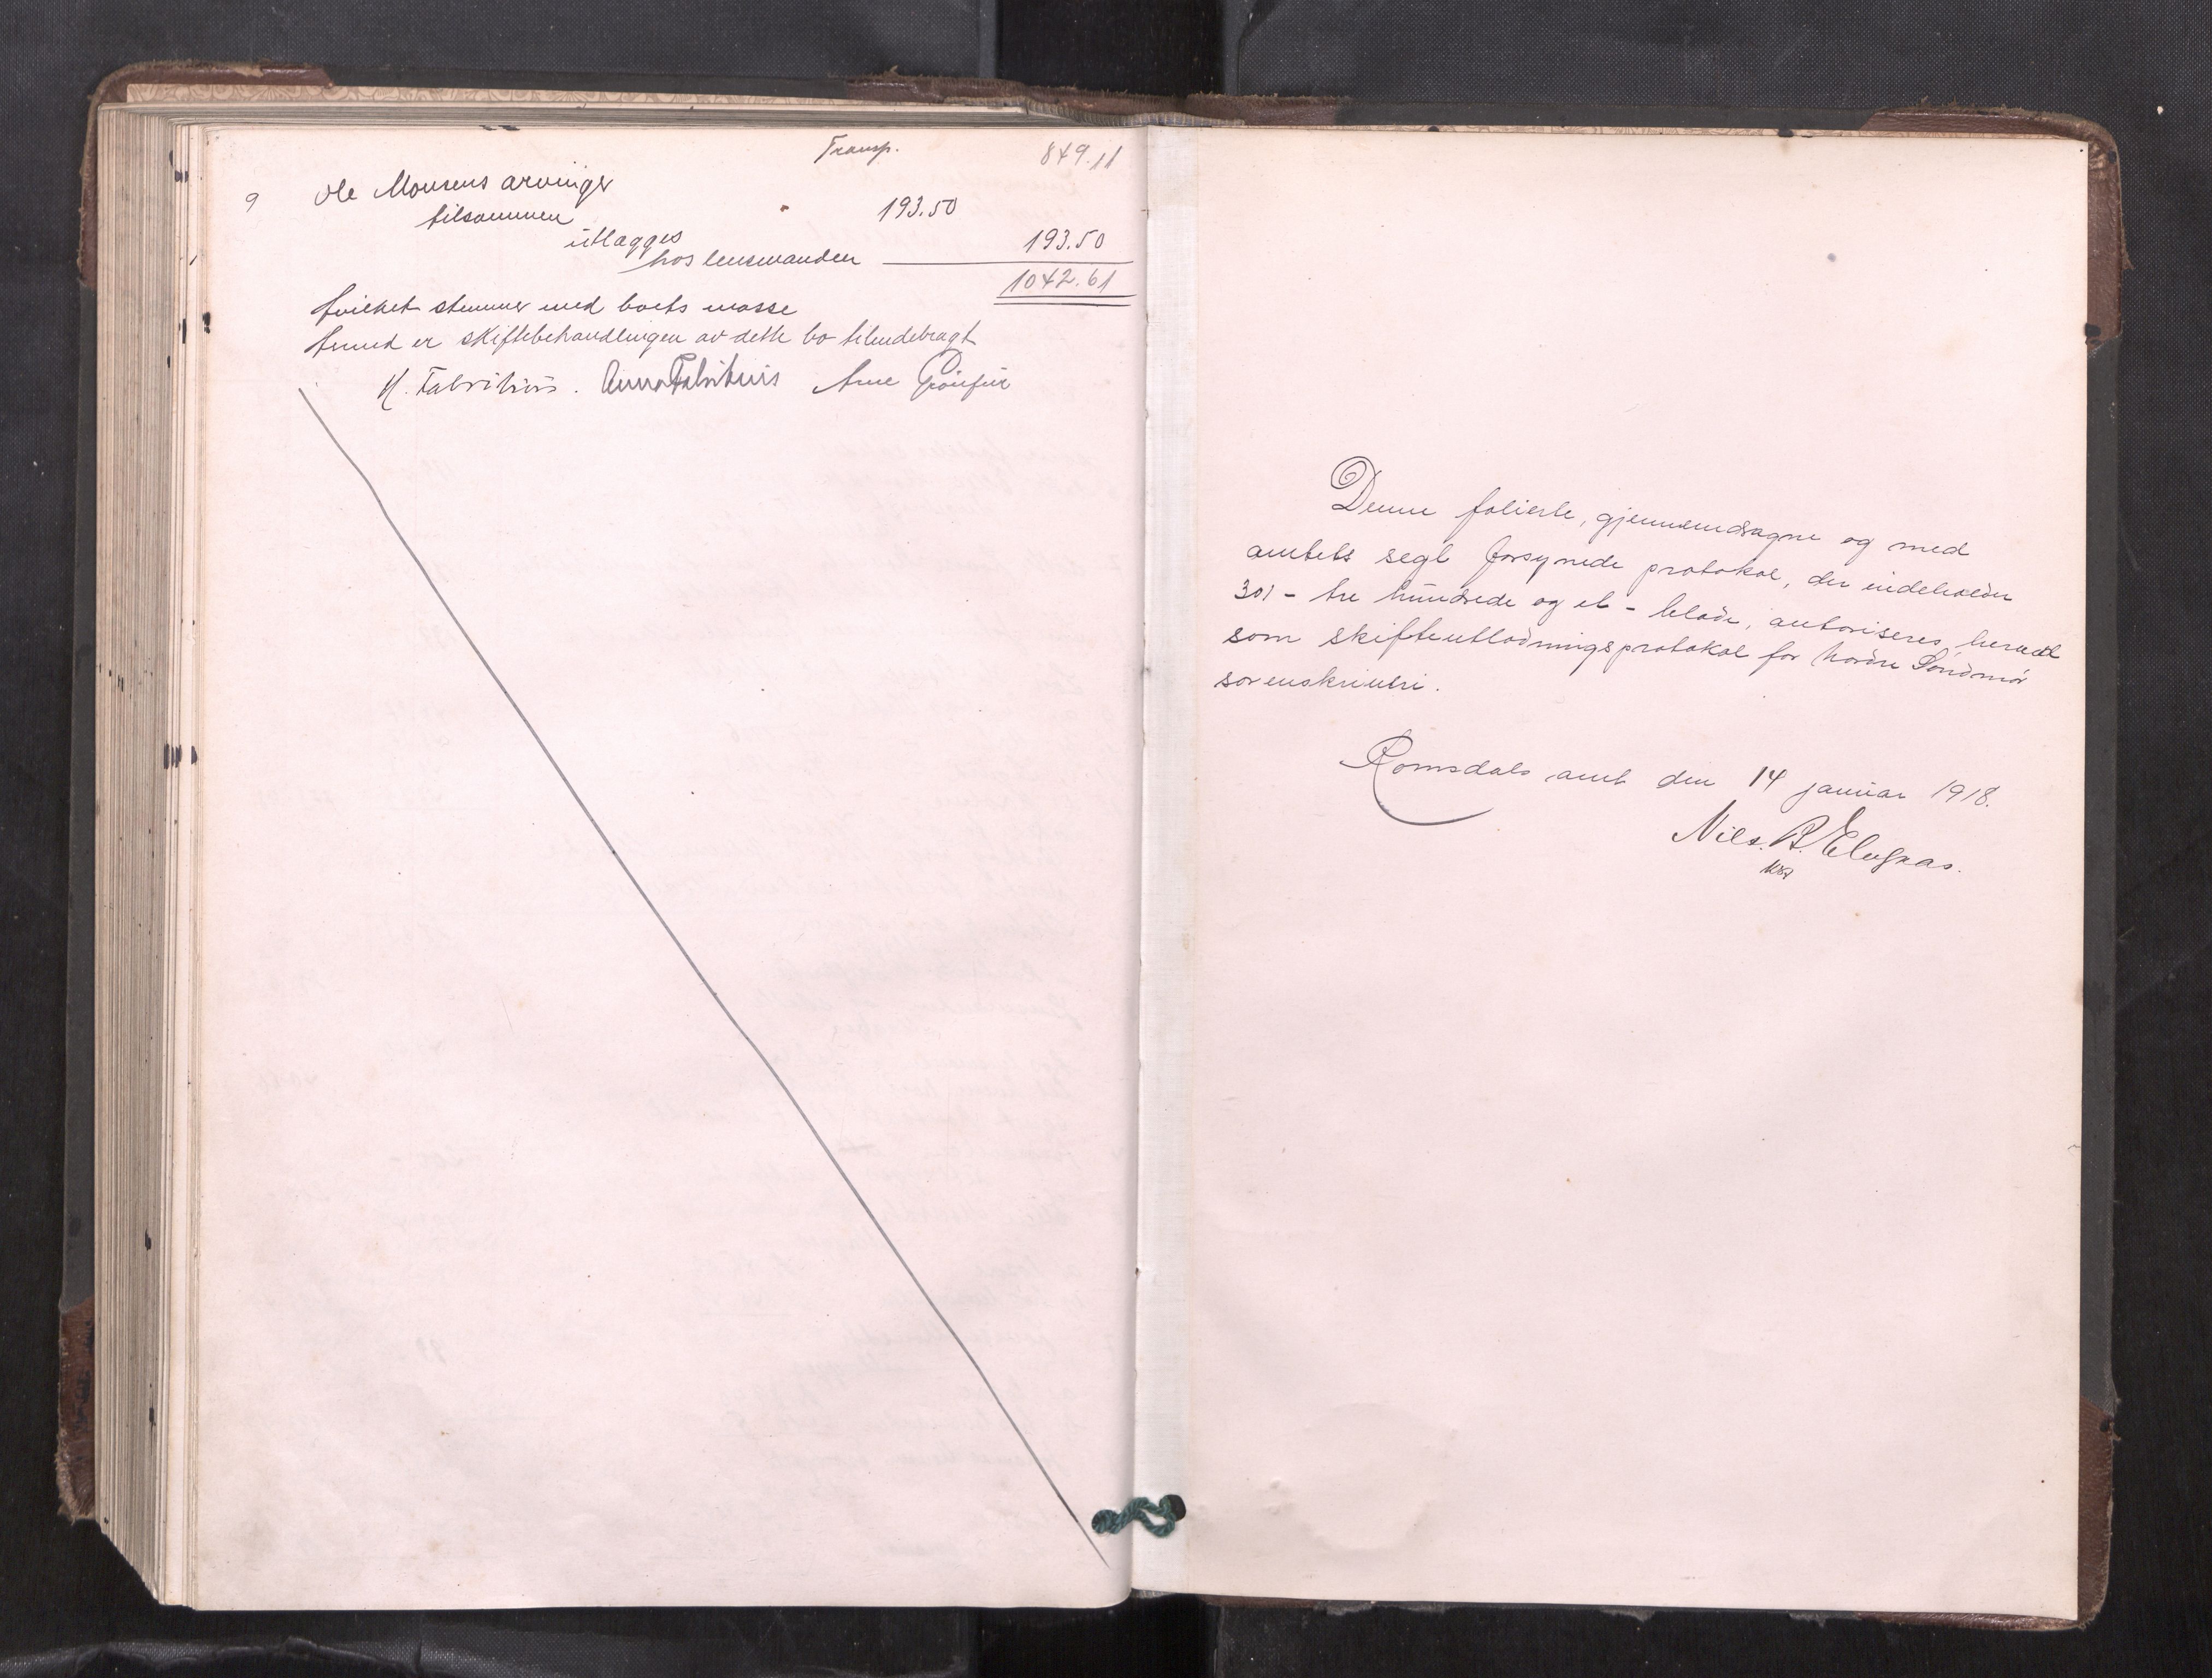 Transp. 849.11
9 Ole Monsens arvinger
tilsammen 193.50
utlægges
hos lensmanden 193.50
1042.61
hvilket stemmer med boets masse
hermed er skiftebehandlingen av dette bo tilendebragt
H. Fabritius. Anna Fabritius Arne
Denne folierte, gjennemdragne og med
amtets segl forsynede protokol, der indeholder
301 - tre hundrede og et - blade, autoriseres herved
som skifteutlodningsprotokol for nordre Søndmør
sorenskriveri.
Romsdals amt den 14 januar 1918.
Nils. R.